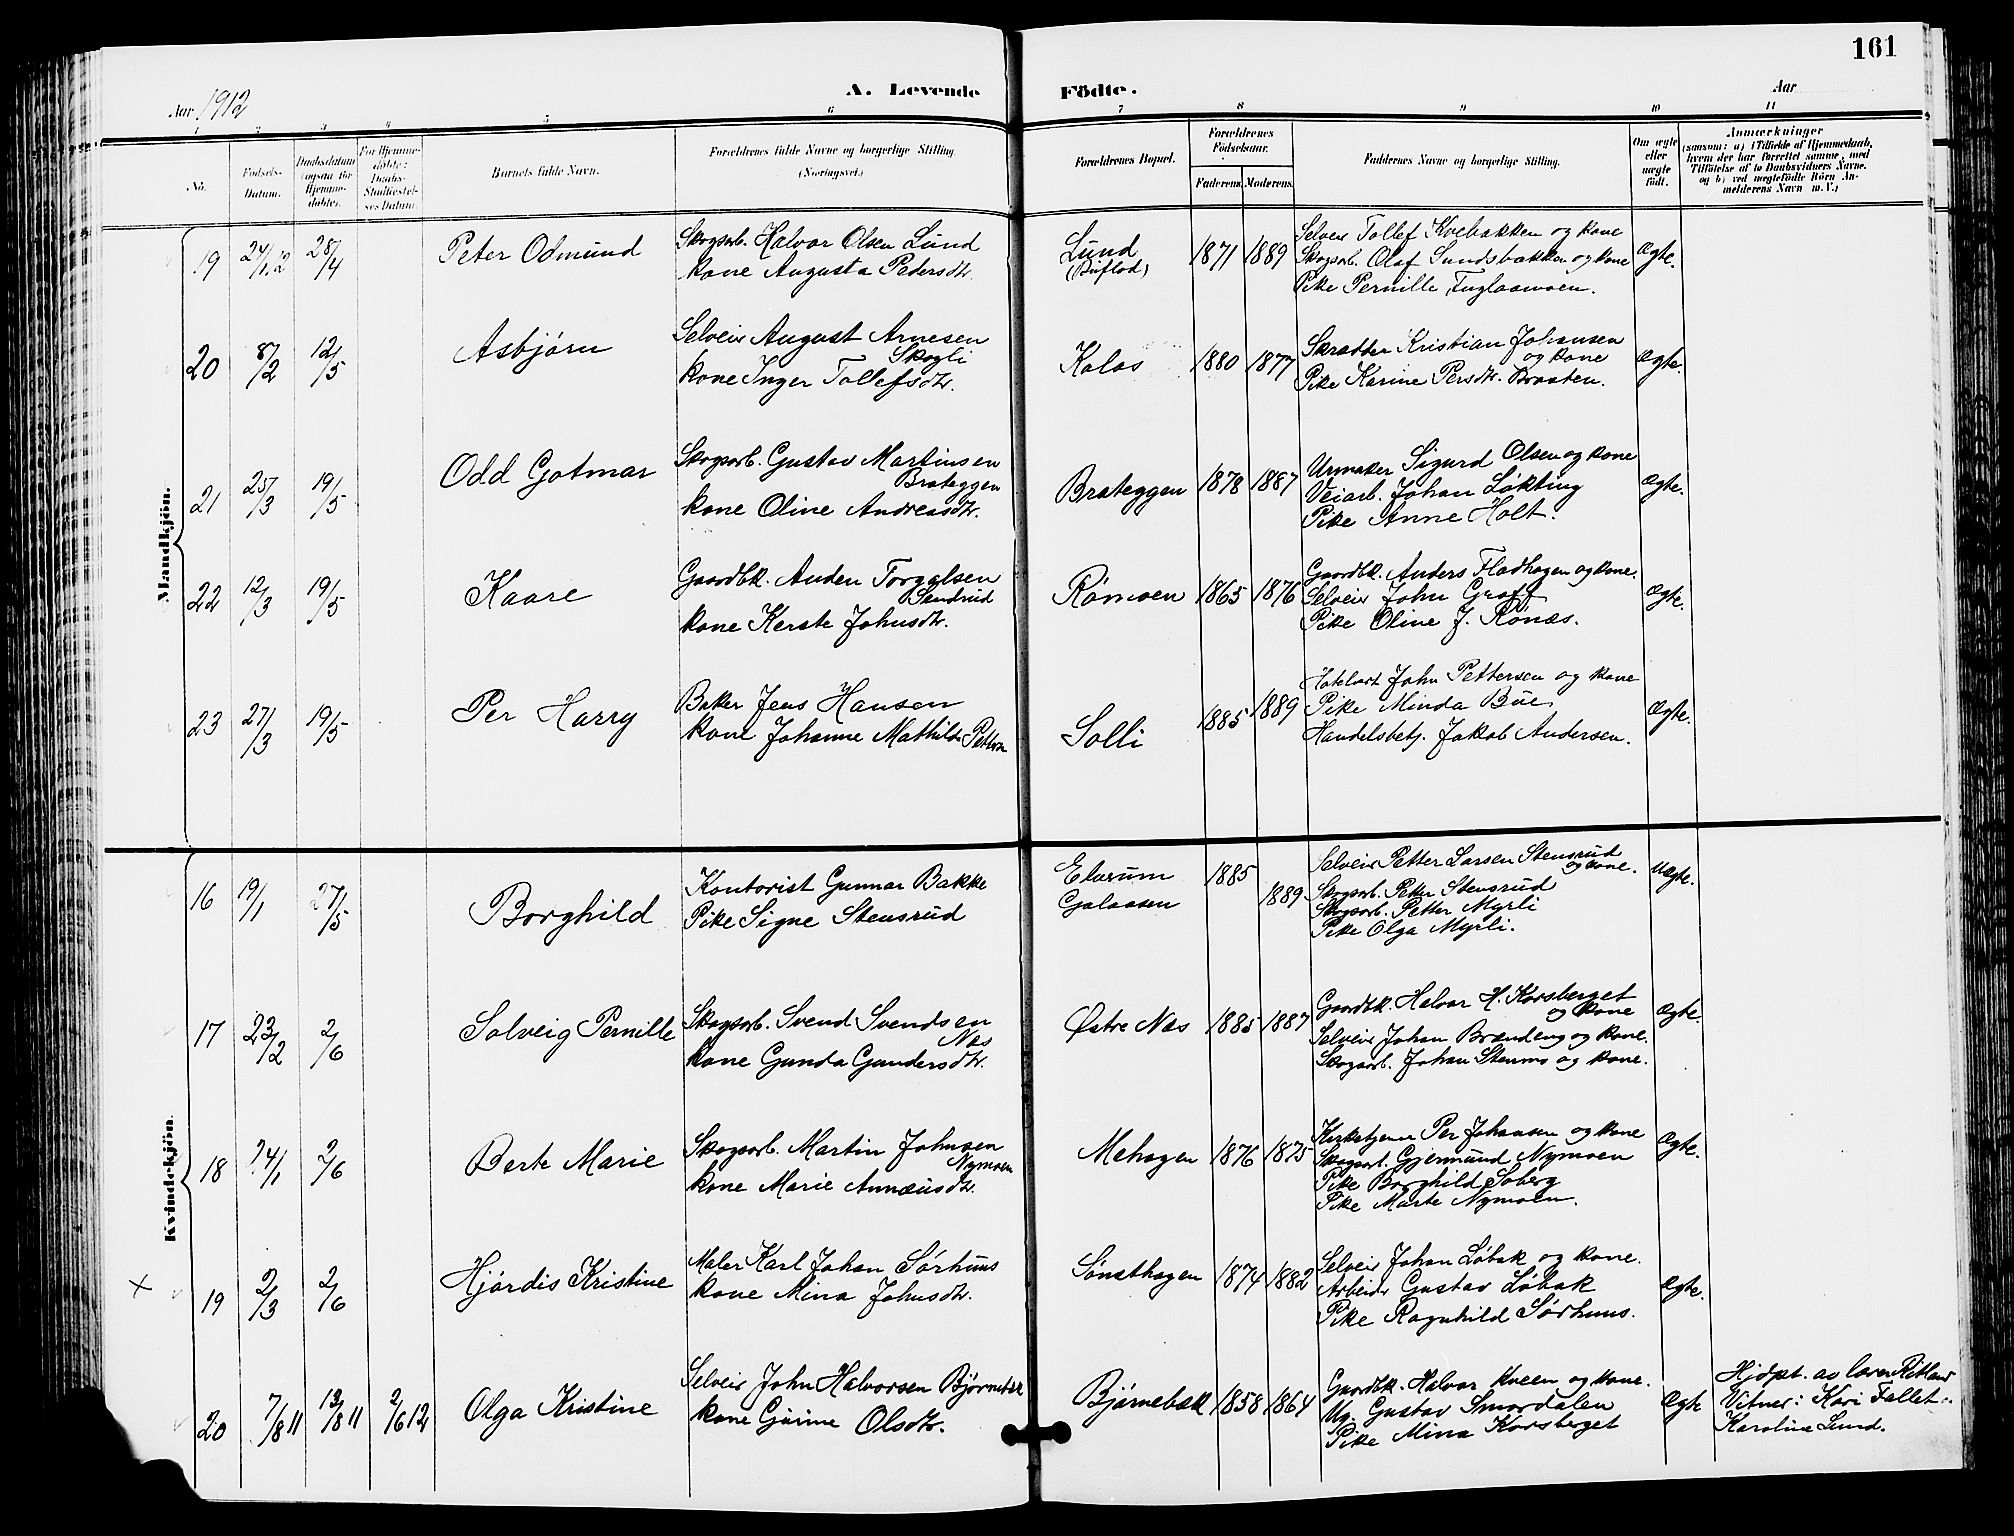 161
Aar 1912
A. Levende Födte.
Aar
1 2 3 4 5 6 7 8 9 10 11
No.
Fødsels-Datum.
Daabsdatum (ogsaa for Hjemme-døbte).
For Hjemme-døbte: Daabs-Stadfæstel-ses Datum.
Barnets fulde Navn.
Forældrenes fulde Navne og borgerlige Stilling (Næringsvei.)
Forældrenes Bopæl.
Forældrenes Födselsaar.
Faderens. Moderens.
Faddernes Navne og borgerlige Stilling.
Om ægte eller uægte født.
Anmærkninger
(saasom: a) i Tilfælde af Hjemmedaab, hvem der har forrettet samme, med Tilföielse af to Daabsvidners Navne. og b) ved uægtefödte Börn An-melderens Navn m. V.)
Mandkjön.
19 24/1 12 28/4 Peter Odmund
Skogsarb. Halvor Olsen Lund
kone Augusta Pedersdtr.
Lund
(Buflod)
1871 1889
Selveier Tollef Kvebakken og kone
Skogsarb. Olaf Sundsbakken og kone
Pike Pernille Fuglaamoen.
Ægte.
20 8/2 12/5 Asbjørn
Selveier August Arnesen
Skogli
kone Inger Tollefsdtr.
Kolos
1880 1877
Skrædder Kristian Johansen
og kone
Pike Karine Persdtr. Braaten.
Ægte.
21 25/3 19/5 Odd Gotmar
Skogsarb. Gustav Martinsen
Brateggen
kone Oline Andreasdtr.
Brateggen
1878 1887
Urmaker Sigurd Olsen og kone
Veiarb. Johan Løkting
Pike Anne Holt.
Ægte.
22 12/3 19/5 Kaare
Gaardbr. Auden Torgalsen
Sandrud
kone Kerste Johnsdtr.
Rømoen
1865 1876
Gaardbr. Anders Flodhagen og kone.
Selveier John Graff
Pike Oline J. Rønæs.
Ægte.
23 27/3 19/5 Per Harry
Baker Jens Hansen
kone Johanne Mathilde Petters
Solli
1885 1889
Hotelvert John Pettersen og kone
Pike Minda Bue
Handelsbetj. Jakob Andersen.
Ægte.
Kvindekjön.
16 19/1 27/5 Borghild
Kontorist Gunnar Bakke
Pike Signe Stensrud
Elverum
Galaasen
1885
1889
Selveier Petter Larsen Stensrud
og kone.
Skogsarb. Petter Stensrud
Skogsarb. Petter Myrli
Pike Olga Myrli.
Uægte.
17 23/2 2/6 Solveig Pernille
Skogsarb. Svend Svendsen
Næs
kone Gunda Gundersdtr.
Østre Næs
1885 1887
Gaardbr. Halvor H. Korsberget
og kone
Selveier Johan Brændeng og kone.
Skogsarb. Johan Stenmo og kone.
Ægte.
18 24/1 2/6 Berte Marie
Skogsarb. Martin Johnsen
Nymoen
kone Marie Annæusdtr.
Mehagen
1876 1875
Kirketjener Per Johansen og kone
Skogsarb. Gjermund Nymoen
Pike Borghild Soberg
Pike Marte Nymoen.
Ægte.
x 19 2/3 2/6 Hjørdis Kristine
Maler Karl Johan Sørhuus
kone Mina Johnsdtr.
Sønsthagen
1874 1882
Selveier Johan Løbak og kone.
Arbeider Gustav Løbak
Pike Ragnhild Sørhuus.
Ægte.
20 7/8 11 13/8 11 2/6 12 Olga Kristine
Selveier John Halvorsen Bjørnebæk
kone Gurine Olsdtr.
Bjørnebæk
1858 1864
Gaardbr. Halvor Kveen og kone.
Ug. Gustav Smordalen
Pike Mina Korsberget
Ægte
Hjdøpt. av Caren Ritland
Vitner: Kari Fallet
Karoline Lund.